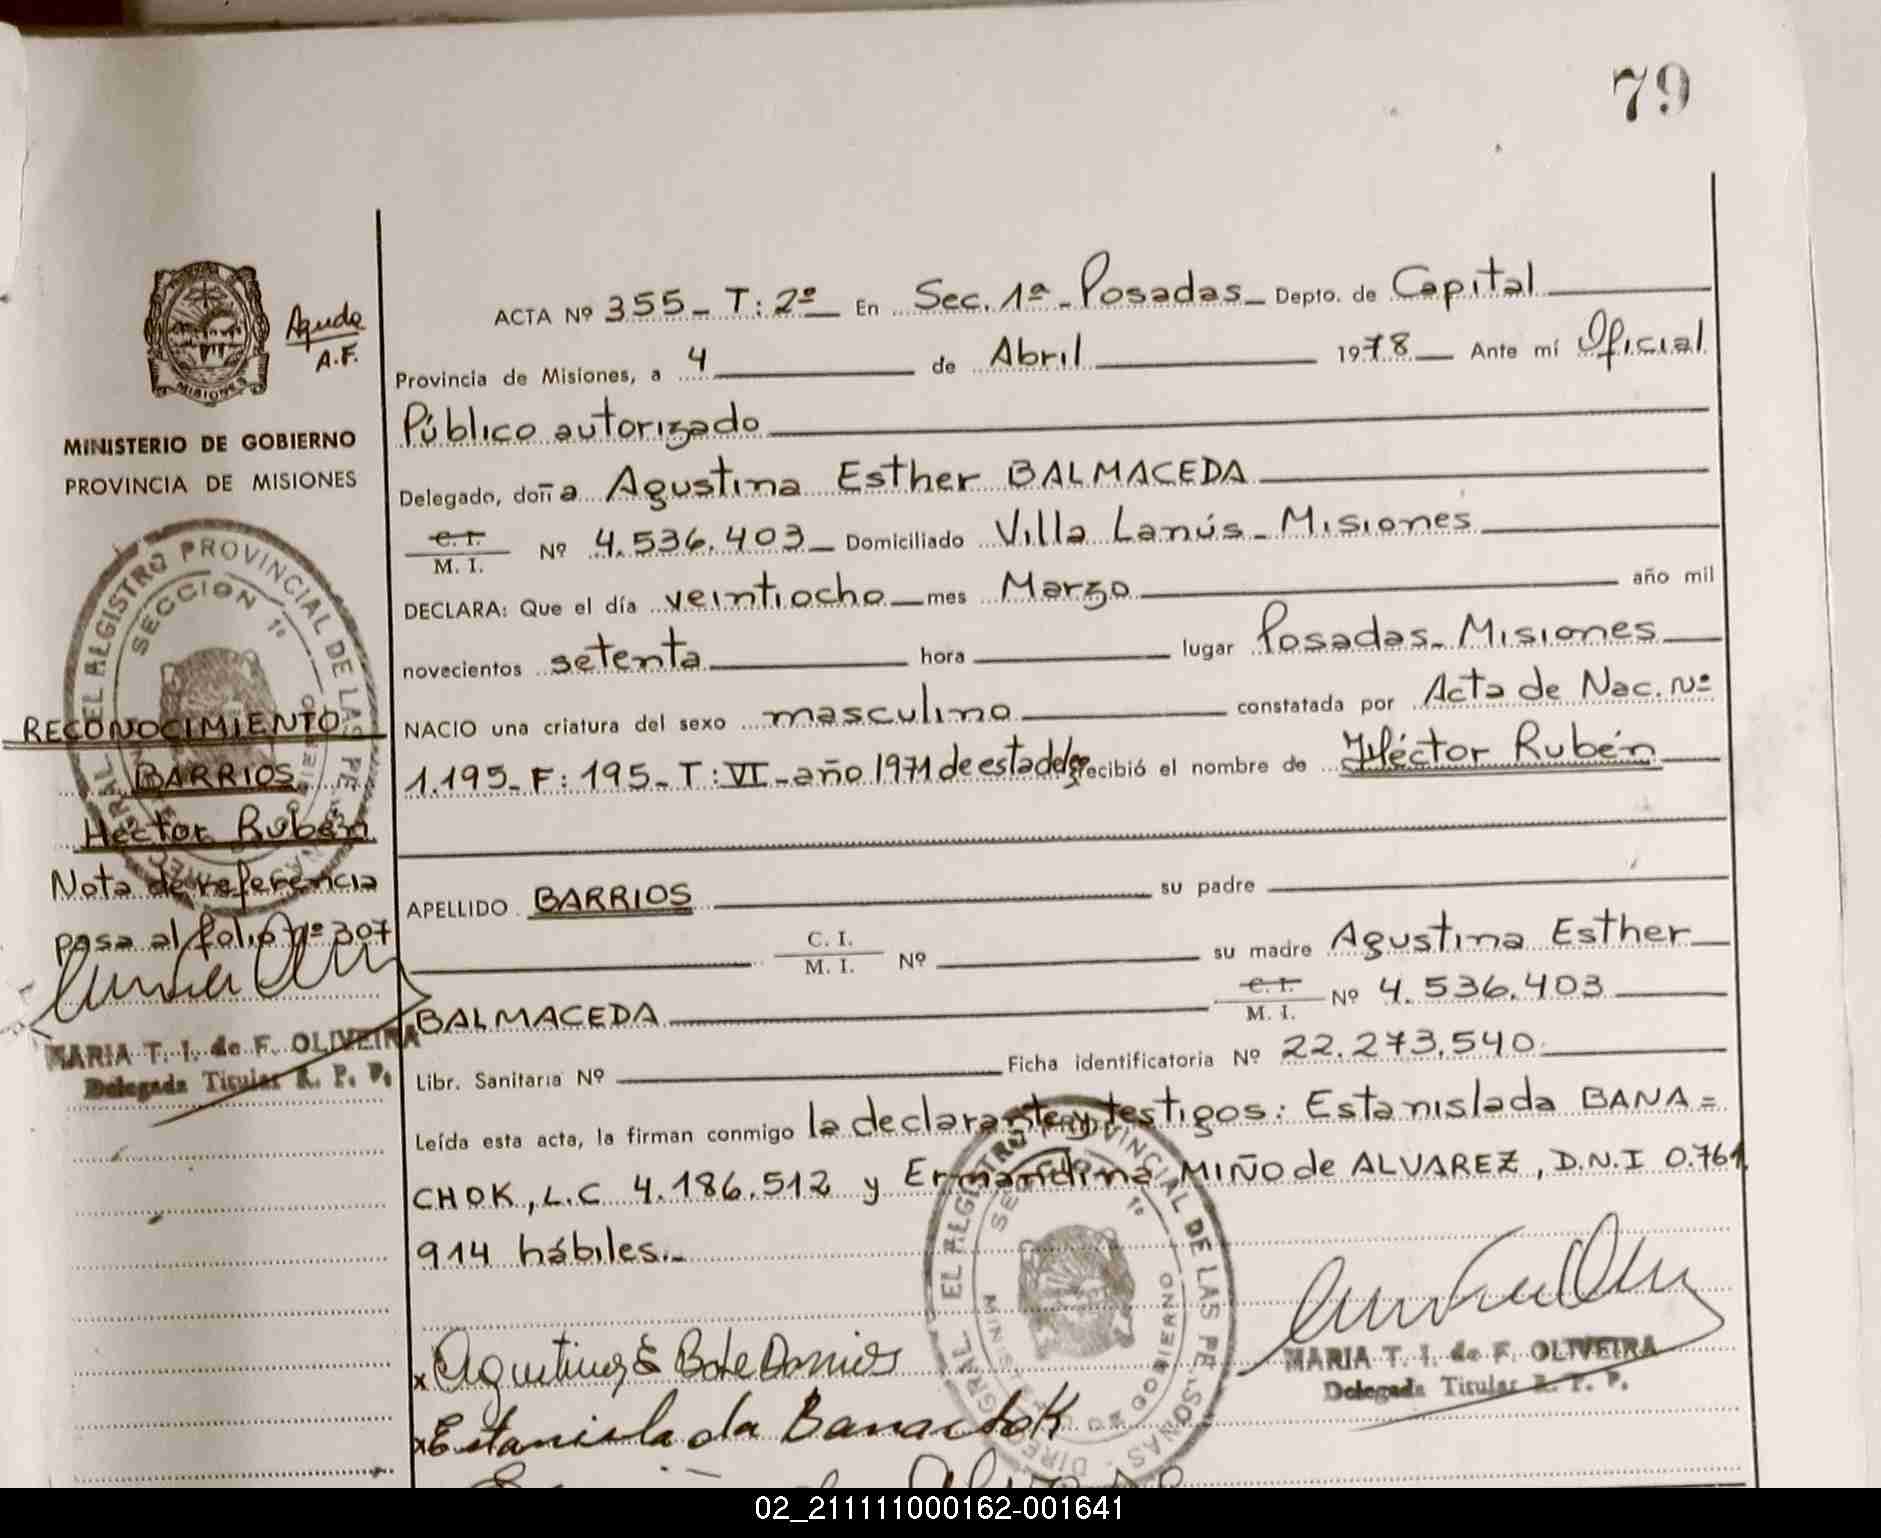 79
ACTA Nº 355_ T: 2º En Sec. 1ª_ Posadas_ Depto. de Capital
Provincia de Misiones, a 4 de Abril 1978 Ante mí Oficial
Público autorizado
Delegado, doña Agustina Esther BALMACEDA
C. I.
M. I. Nº 4.536.403_ Domiciliado Villa Lanús_ Misiones
DECLARA: Que el día veintiocho mes Marzo año mil
novecientos setenta hora lugar Posadas_ Misiones
NACIO una criatura del sexo masculino constatada por Acta de Nac. Nº
1.195_ F: 195_ T: VI_ año 1971 de esta deleg. recibió el nombre de Héctor Rubén
APELLIDO BARRIOS su padre
C. I.
M. I. Nº su madre Agustina Esther
BALMACEDA C. I.
M. I. Nº 4.536.403
Libr. Sanitaria Nº Ficha identificatoria Nº 22.273.540
Leída esta acta, la firman conmigo la declarante y testigos: Estanislada BANA=
CHOK, L.C 4.186.512 y Ermandina MIÑO de ALVAREZ, D.N.I 0.761
914 hábiles._
x Agustina E B de Barrios
x Estanislada Banachok
MARIA T. I. de F. OLIVEIRA
Delegada Titular R. P. P.
MISIONES
Aguda
A.F.
MINISTERIO DE GOBIERNO
PROVINCIA DE MISIONES
REGISTRO PROVINCIAL DE LAS PERSONAS
SECCION 1º
RECONOCIMIENTO
BARRIOS
Héctor Rubén
Nota de referencia
pasa al folio Nº 307
MARIA T. I. de F. OLIVEIRA
Delegada Titular R. P. P.
REGISTRO PROVINCIAL DE LAS PERSONAS
02_211111000162-001641